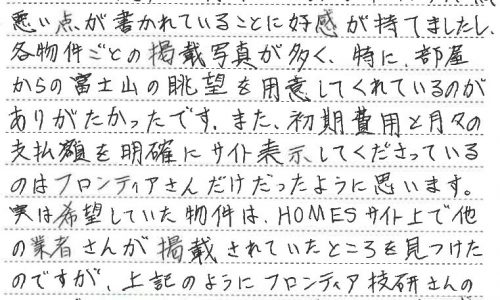 悪い点が書かれていることに好感が持てましたし、
各物件ごとの掲載写真が多く、特に、部屋
からの富士山の眺望を用意してくれているのが
ありがたかったです。また、初期費用と月々の
支払額を明確にサイト表示してくださっている
のはフロンティアさんだけだったように思います。
実は希望していた物件は、HOMESサイト上で他
の業者さんが掲載されていたところを見つけた
のですが、上記のようにフロンティア技研さんの